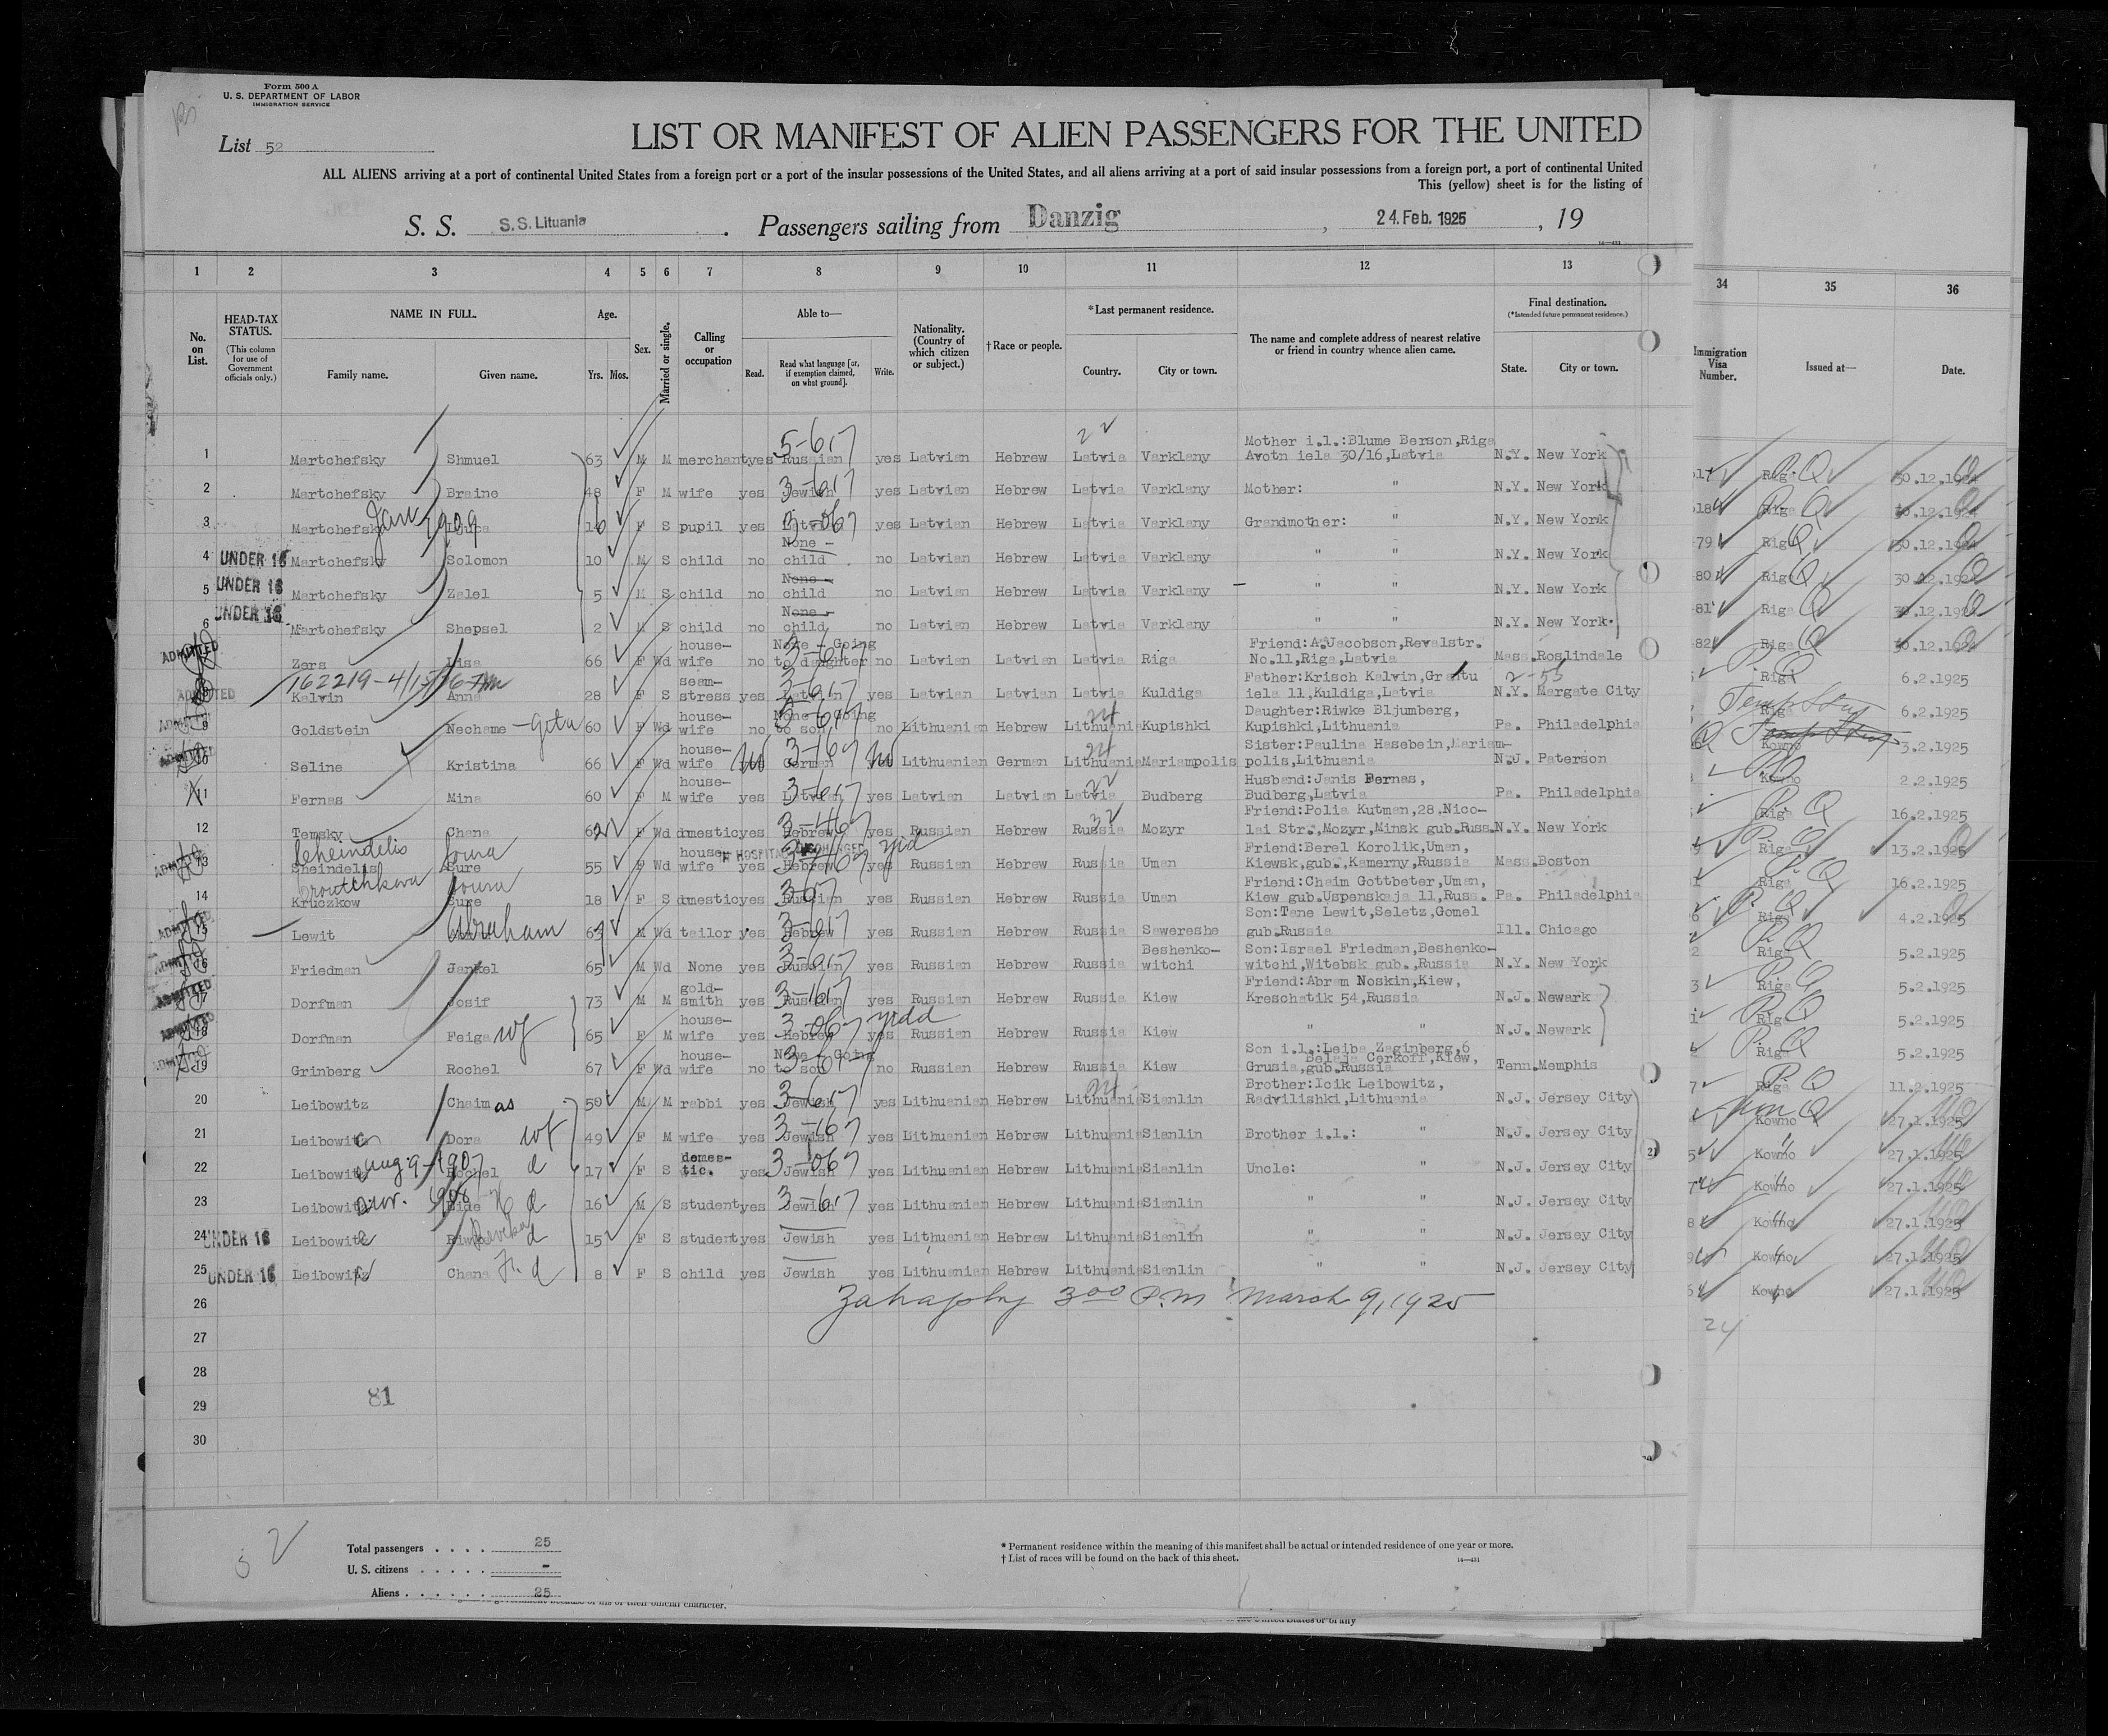 Form 500 A
U. S. DEPARTMENT OF LABOR
IMMIGRATION SERVICE
List 52
LIST OR MANIFEST OF ALIEN PASSENGERS FOR THE UNITED
ALL ALIENS arriving at a port of continental United States from a foreign port or a port of the insular possessions of the United States, and all aliens arriving at a port of said insular possessions from a foreign port, a port of continental United
This (yellow) sheet is for the listing of
S. S. S.S. Lituania . Passengers sailing from Danzig , 24. Feb. 1925 , 19
1 2 3 4 5 6 7 8 9 10 11 12 13 34 35 36
No. on List.
HEAD-TAX STATUS. (This column for use of Government officials only.)
NAME IN FULL. Family name. Given name.
Age. Yrs. Mos.
Sex.
Married or single.
Calling or occupation
Able to— Read. Read what language [or, if exemption claimed, on what ground]. Write.
Nationality. (Country of which citizen or subject.)
† Race or people.
*Last permanent residence. Country. City or town.
The name and complete address of nearest relative or friend in country whence alien came.
Final destination. (*Intended future permanent residence.) State. City or town.
Immigration Visa Number.
Issued at—
Date.
1 Martchefsky Shmuel 63 M M merchant yes Russian yes Latvian Hebrew Latvia Varklany Mother i.l.:Blume Berson,Riga Avotn iela 30/16,Latvia N.Y. New York Riga 30.12.1924
2 Martchefsky Braine 48 F M wife yes Jewish yes Latvian Hebrew Latvia Varklany Mother: " N.Y. New York Riga 30.12.1924
3 Martchefsky 1909 16 F S pupil yes yes Latvian Hebrew Latvia Varklany Grandmother: " N.Y. New York Riga 30.12.1924
4 UNDER 16 Martchefsky Solomon 10 M S child no None - child no Latvian Hebrew Latvia Varklany " " N.Y. New York Riga 30.12.1924
5 UNDER 16 Martchefsky Zalel 5 M S child no None - child no Latvian Hebrew Latvia Varklany " " N.Y. New York Riga 30.12.1924
6 UNDER 16 Martchefsky Shepsel 2 M S child no None - child no Latvian Hebrew Latvia Varklany " " N.Y. New York Riga 30.12.1924
ADMITTED Zers Lisa 66 F Wd house-wife no None - Going to daughter no Latvian Latvian Latvia Riga Friend:A.Jacobson,Revalstr. No.11,Riga,Latvia Mass. Roslindale Riga 6.2.1925
162219-4/15/36
ADMITTED 8 Kalvin Anna 28 F S seam-stress yes Latvian yes Latvian Latvian Latvia Kuldiga Father:Krisch Kalvin,Grantu iela 11,Kuldiga,Latvia N.Y. Margate City Riga 6.2.1925
ADMITTED 9 Goldstein Nechame -Gita 60 F Wd house-wife no None - Going to son no Lithuanian Hebrew Lithuania Kupishki Daughter:Riwke Bljumberg, Kupishki,Lithuania Pa. Philadelphia Kowno 3.2.1925
ADMITTED 10 Seline Kristina 66 F Wd house-wife no German no Lithuanian German Lithuania Mariampolis Sister:Paulina Hasebein,Mariam-polis,Lithuania N.J. Paterson Kowno 2.2.1925
11 Fernas Mina 60 F M house-wife yes Latvian yes Latvian Latvian Latvia Budberg Husband:Janis Fernas, Budberg,Latvia Pa. Philadelphia Riga 16.2.1925
12 Temsky Chana 62 F Wd dmestic yes Hebrew yes Russian Hebrew Russia Mozyr Friend:Polia Kutman,28.Nico-lai Str.,Mozyr,Minsk gub.Russ. N.Y. New York Riga 13.2.1925
ADMITTED 13 Scheindelis Soura Sheindelis Sure 55 F Wd house-wife yes Hebrew yid yes Russian Hebrew Russia Uman Friend:Berel Korolik,Uman, Kiewsk,gub.,Kamerny,Russia Mass. Boston Riga 16.2.1925
14 Kruczkow Sure Soura 18 F S dmestic yes Russian yes Russian Hebrew Russia Uman Friend:Chaim Gottbeter,Uman, Kiew gub.Uspenskaja 11,Russ. Pa. Philadelphia Riga 4.2.1925
ADMITTED 15 Lewit Abraham M Wd tailor yes Hebrew yes Russian Hebrew Russia Sawereshe Son:Tane Lewit,Seletz,Gomel gub.Russia Ill. Chicago Riga 5.2.1925
ADMITTED 16 Friedman Jankel 65 M Wd None yes Russian yes Russian Hebrew Russia Beshenko-witchi Son:Israel Friedman,Beshenko-witchi,Witebsk gub.,Russia N.Y. New York Riga 5.2.1925
ADMITTED 17 Dorfman Josif 73 M M gold-smith yes Russian yes Russian Hebrew Russia Kiew Friend:Abram Noskin,Kiew, Kreschatik 54,Russia N.J. Newark Riga 5.2.1925
ADMITTED 18 Dorfman Feiga wf 65 F M house-wife yes Hebrew yidd yes Russian Hebrew Russia Kiew " " N.J. Newark Riga 5.2.1925
ADMITTED 19 Grinberg Rochel 67 F Wd house-wife no None - Going to son no Russian Hebrew Russia Kiew Son i.l.:Leiba Zaginberg,6 Belaja Cerkoff,Kiew, Grusia,gub.Russia Tenn. Memphis Riga 11.2.1925
20 Leibowitz Chaim as 50 M M rabbi yes Jewish yes Lithuanian Hebrew Lithuania Sianlin Brother:Icik Leibowitz, Radvilishki,Lithuania N.J. Jersey City Kowno 27.1.1925
21 Leibowitz Dora wf 49 F M wife yes Jewish yes Lithuanian Hebrew Lithuania Sianlin Brother i.l.: " N.J. Jersey City Kowno 27.1.1925
22 Leibowitz Aug. 9-1907 Rochel d 17 F S domes-tic. yes Jewish yes Lithuanian Hebrew Lithuania Sianlin Uncle: " N.J. Jersey City Kowno 27.1.1925
23 Leibowitz 1908 16 M S student yes Jewish yes Lithuanian Hebrew Lithuania Sianlin " " N.J. Jersey City Kowno 27.1.1925
24 UNDER 16 Leibowitz d 15 F S student yes Jewish yes Lithuanian Hebrew Lithuania Sianlin " " N.J. Jersey City Kowno 27.1.1925
25 UNDER 16 Leibowitz Chana d 8 F S child yes Jewish yes Lithuanian Hebrew Lithuania Sianlin " " N.J. Jersey City Kowno 27.1.1925
26 3 00 P.M March 9, 1925
24
27
28
29 81
30
Total passengers . . . . 25
U. S. citizens . . . . . -
Aliens . . . . . . 25
* Permanent residence within the meaning of this manifest shall be actual or intended residence of one year or more.
† List of races will be found on the back of this sheet.